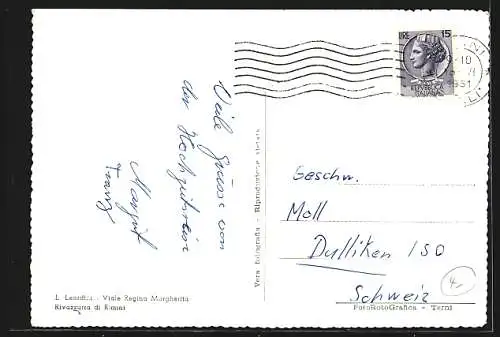 LIRE 15
REPVBBLICA
ITALIANA
Viele Grüsse von
der Hochzeitsreise
Margrit
Franz
Vera fotografia - Riproduzione vietata
Geschw.
Moll
Dulliken / SO
Schweiz
4.-
Viale Regina Margherita
Rivazzurra di Rimini
FotoRotoGrafica - Terni